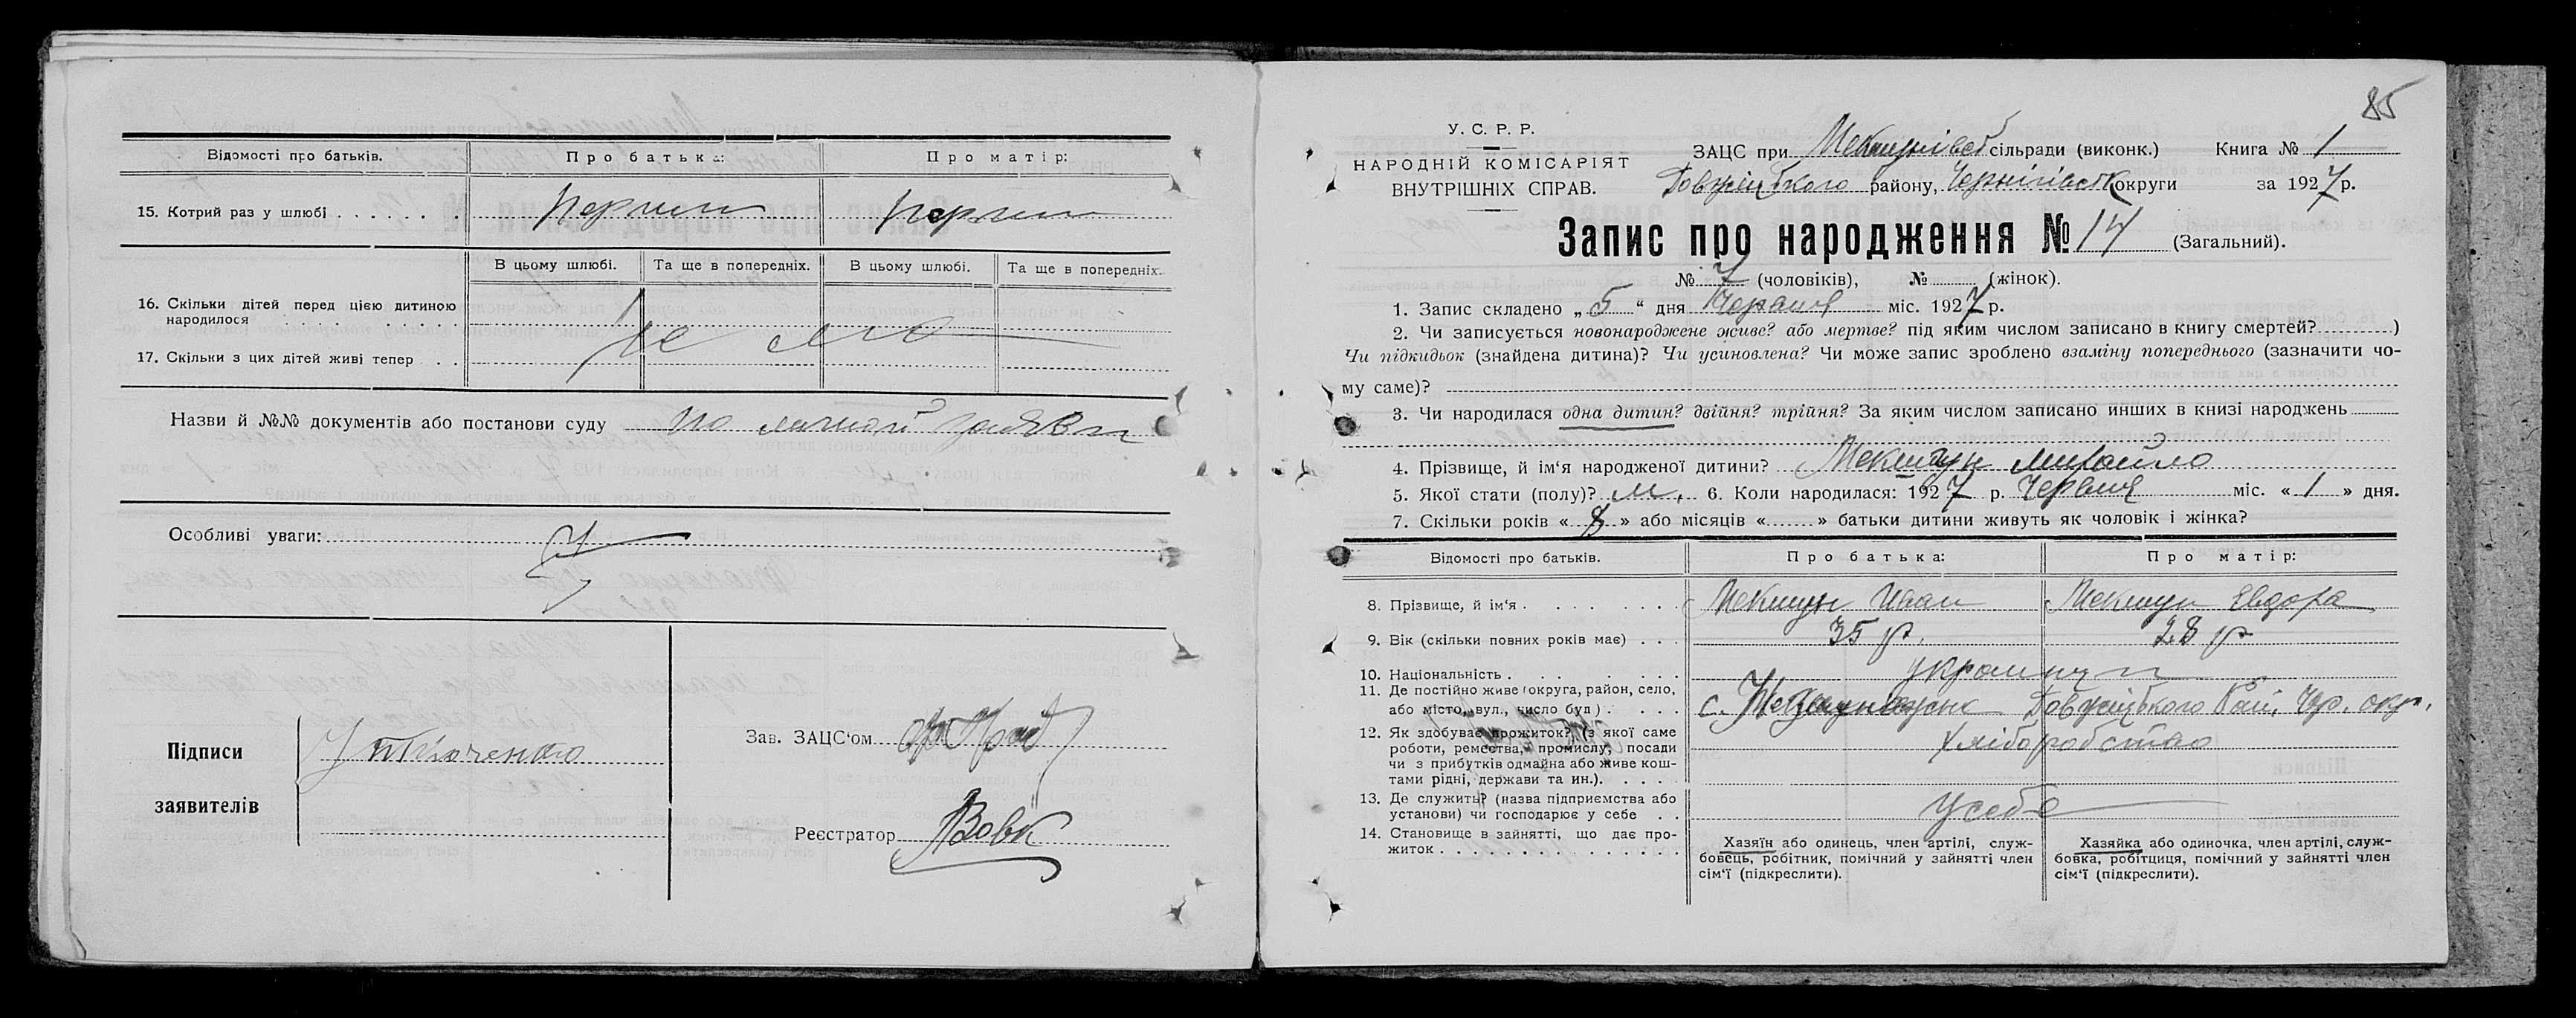 Відомості про батьків. Про батька: Про матір:
15. Котрий раз у шлюбі . . . . . . . перший перший
В цьому шлюбі. Та ще в попередніх. В цьому шлюбі. Та ще в попередніх.
16. Скільки дітей перед цією дитиною
народилося . . . . . . . . .
17. Скільки з цих дітей живі тепер . .
Назви й №№ документів або постанови суду по личной заяви
Особливі уваги:
Підписи
заявителів
Зав. ЗАЦС‘ом
Реєстратор Вовк
85
У. С. Р. Р.
НАРОДНІЙ КОМІСАРІЯТ
ВНУТРІШНІХ СПРАВ.
ЗАЦС при сільради (виконк.) Книга № 1
району, округи за 1927 р.
Запис про народження № 14 (Загальний).
№ 7 (чоловіків), № (жінок).
1. Запис складено „ 5 “ дня Червня міс. 1927 р.
2. Чи записується новонароджене живе? або мертве? під яким числом записано в книгу смертей? )
Чи підкидьок (знайдена дитина)? Чи усиновлена? Чи може запис зроблено взаміну попереднього (зазначити чо-
му саме)?
3. Чи народилася одна дитин? двійня? трійня? За яким числом записано инших в книзі народжень
4. Прізвище, й ім‘я народженої дитини? Мекшун Михайло
5. Якої стати (полу)? м. 6. Коли народилася: 1927 р. Червня міс. « 1 » дня.
7. Скільки років « 8 » або місяців « » батьки дитини живуть як чоловік і жінка?
Відомості про батьків. Про батька: Про матір:
8. Прізвище, й ім‘я . . . . . . . Мекшун Иван Мекшун Евдора
9. Вік (скільки повних років має) . . . 35 р. 28 р
10. Національність . . . . . . українці
11. Де постійно живе (округа, район, село,
або місто, вул., число буд ) . . . . с. рай. Чер. окр.
12. Як здобуває прожиток? (з якої саме
роботи, ремества, промислу, посади
чи з прибутків одмайна або живе кош-
тами рідні, держави та ин.). . . . . хліборобство
13. Де служить? (назва підприємства або
установи) чи господарює у себе . . у себе
14. Становище в зайнятті, що дає про-
житок . . . . . . . . . . . . .
Хазяїн або одинець, член артілі, служ-
бовець, робітник, помічний у зайнятті член
сім‘ї (підкреслити).
Хазяйка або одиночка, член артілі, служ-
бовка, робітциця, помічний у зайнятті член
сім‘ї (підкреслити).